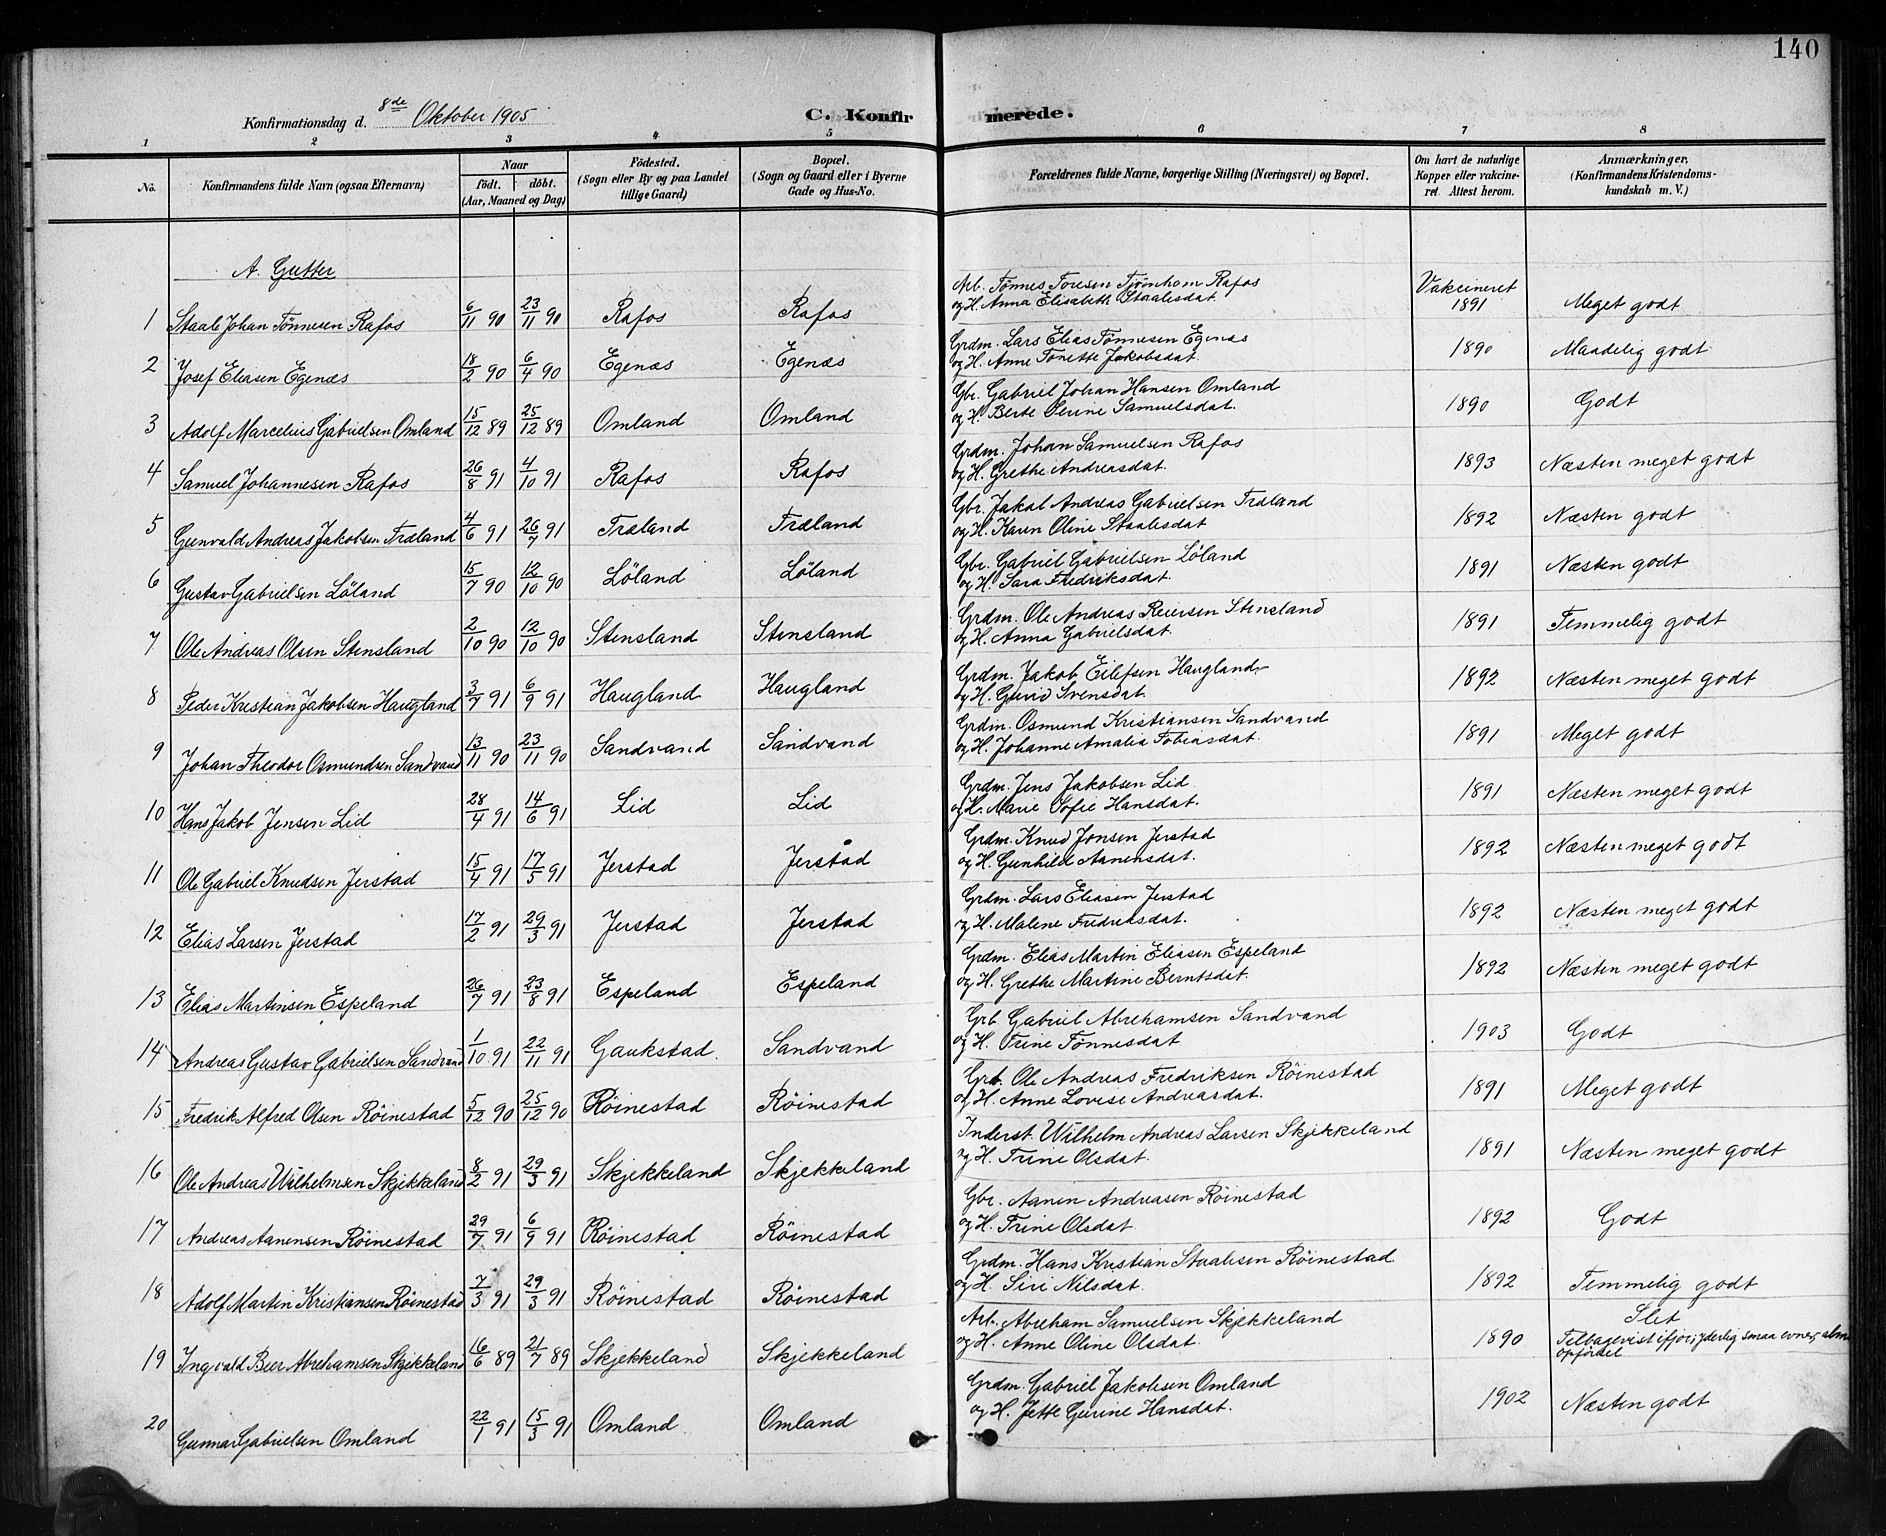 140
Konfirmationsdag d. 8de Oktober 1905
C. Konfirmerede.
1 2 3 4 5 6 7 8
No. Konfirmandens fulde Navn (ogsaa Efternavn) Naar födt. döbt. (Aar, Maaned og Dag) Födested. (Sogn eller By og paa Landet tillige Gaard) Bopæl. (Sogn og Gaard eller i Byerne Gade og Hus-No. Forældrenes fulde Navne, borgerlige Stilling (Næringsvei) og Bopæl. Om havt de naturlige Kopper eller vakcineret. Attest herom. Anmærkninger, (Konfirmandens Kristendomskundskab m. V.)
A. Gutter
1 Staale Johan Tönnesen Rafos 6/11 90 23/11 90 Rafos Rafos Arb. Tønnes Toresen Tjørnhom Rafos Vakcineret 1891 Meget godt
og H. Anna Elisabeth Staalesdat.
2 Josef Eliasen Egenæs 18/2 90 6/4 90 Egenæs Egenæs Grdm. Lars Elias Tønnesen Egenæs 1890 Maadelig godt
og H. Anne Tonette Jakobsdat.
3 Adolf Marcelius Gabrielsen Omland 15/12 89 25/12 89 Omland Omland Gbr. Gabriel Johan Hansen Omland 1890 Godt
og H. Berte Serine Samuelsdat.
4 Samuel Johannesen Rafos 26/8 91 4/10 91 Rafos Rafos Grdm. Johan Samuelsen Rafos 1893 Næsten meget godt
og H. Grethe Andreasdat.
5 Gunvald Andreas Jakobsen Træland 4/6 91 26/7 91 Træland Træland Gbr. Jakob Andreas Gabrielsen Træland 1892 Næsten godt
og H. Karen Oline Staalesdat
6 Gustav Gabrielsen Löland 15/7 90 12/10 90 Löland Löland Gbr. Gabriel Gabrielsen Löland 1891 Næsten godt
og H. Sara Fredriksdat.
7 Ole Andreas Olsen Stensland 2/10 90 12/10 90 Stensland Stensland Grdm. Ole Andreas Reiersen Stensland 1891 Temmelig godt
og H. Anna Gabrielsdat.
8 Peder Kristian Jakobsen Haugland 3/7 91 6/9 91 Haugland Haugland Grdm. Jakob Eilefsen Haugland 1892 Næsten meget godt
og H. Guvid Svensdat.
9 Johan Theodor Osmundsen Sandvand 13/11 90 23/11 90 Sandvand Sandvand Grdm. Osmund Kristiansen Sandvand 1891 Meget godt
og H. Johanne Amalia Tobiasdat.
10 Hans Jakob Jensen Lid 28/4 91 14/6 91 Lid Lid Grdm. Jens Jakobsen Lid 1891 Næsten meget godt
og H. Marie Sofie Hansdat.
11 Ole Gabriel Knudsen Jerstad 15/4 91 17/5 91 Jerstad Jerstad Grdm. Knud Jonsen Jerstad 1892 Næsten meget godt
og H. Gunhilde Aanensdat.
12 Elias Larsen Jerstad 17/2 91 29/3 91 Jerstad Jerstad Grdm. Lars Eliasen Jerstad 1892 Næsten meget godt
og H. Malene Fredriksdat.
13 Elias Martinsen Espeland 26/7 91 23/8 91 Espeland Espeland Grdm. Elias Martin Eliasen Espeland 1892 Næsten meget godt
og H. Grethe Martine Berntsdat.
14 Andreas Gustav Gabrielsen Sandvand 1/10 91 22/11 91 Gaukstad. Sandvand Grb. Gabriel Abrehamsen Sandvand 1903 Godt
og H. Trine Tønnesdat.
15 Fredrik Alfred Olsen Röinestad 5/12 90 25/12 90 Röinestad Röinestad Grb. Ole Andreas Fredriksen Röinestad 1891 Meget godt
og H. Anne Lovise Andreasdat.
16 Ole Andreas Wilhelmsen Skjekkeland 8/2 91 29/3 91 Skjekkeland Skjekkeland Inderst. Wilhelm Andreas Larsen Skjekkeland 1891 Næsten meget godt
og H. Trine Olsdat.
17 Andreas Aanensen Röinestad 29/7 91 6/9 91 Röinestad Röinestad Gbr. Aanen Andreasen Röinestad 1892 Godt
og H. Trine Olsdat.
18 Adolf Martin Kristiansen Röinestad 7/3 91 29/3 91 Röinestad Röinestad Grdm. Hans Kristian Staalesen Röinestad 1892 Temmelig godt
og H. Siri Nilsdat.
19 Ingvald Beer Abrehamsen Skjekkeland 16/6 89 21/7 89 Skjekkeland Skjekkeland Arb. Abreham Samuelsen Skjekkeland 1890 Slet
og H. Anne Oline Olsdat. Tilbagevist ifjor; yderlig smaa evner,
20 Gunnar Gabrielsen Omland 22/1 91 15/3 91 Omland Omland Grdm. Gabriel Jakobsen Omland 1902 Næsten godt
og H. Jette Gurine Hansdat.